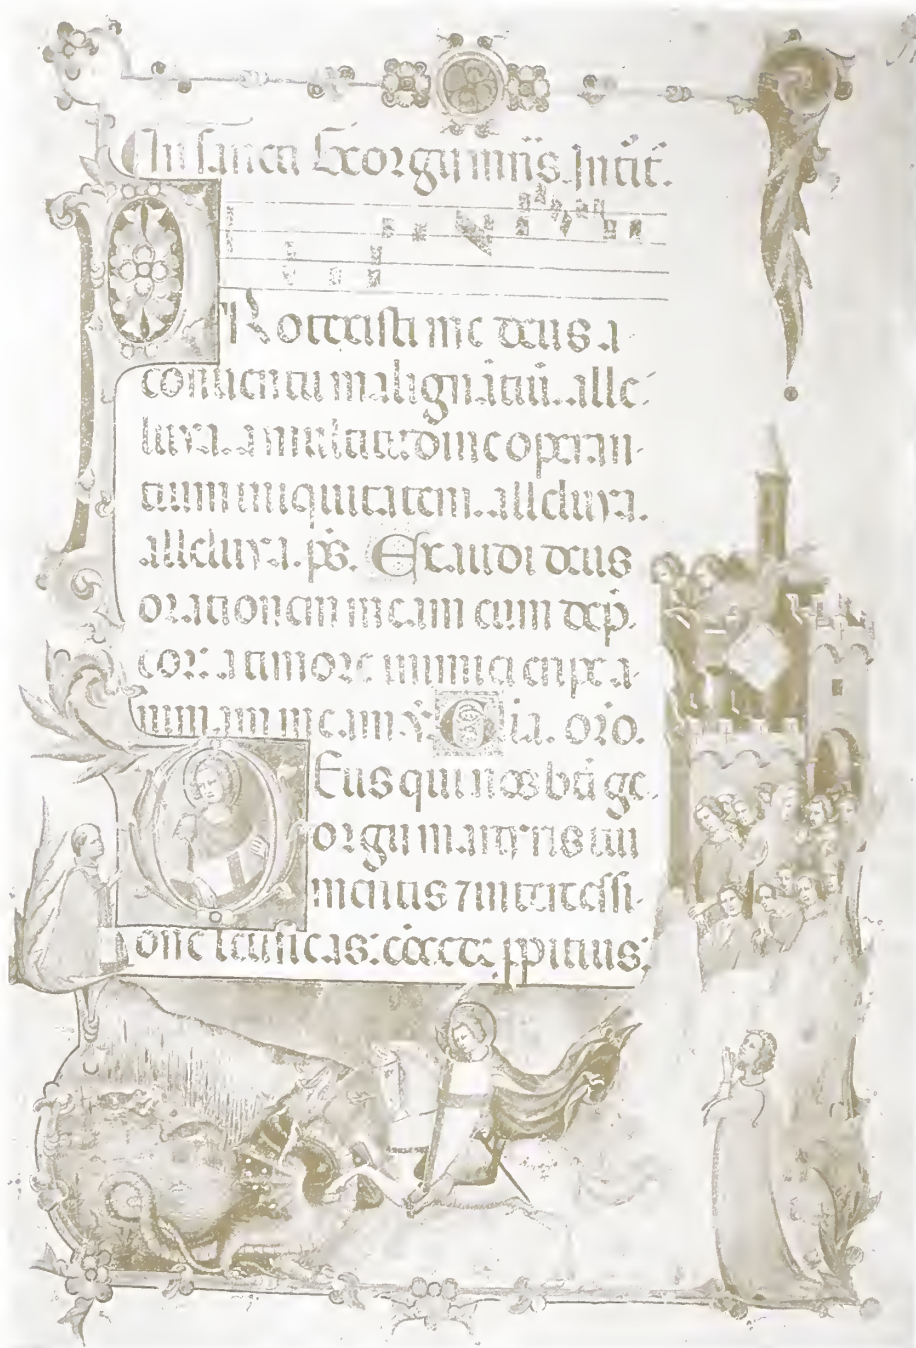 In sancti Georgii mr̄is. Introit.
PRotexisti me deus a
conuentu malignātiū. alle-
luya. a multitudine operan-
tium iniquitatem. alleluya.
alleluya. ps. Exaudi deus
orationem meam cum dep̄-
cor: a timore inimici eripe a-
nimam meam. V. Gl̄ia. oro.
DEus qui nos bt̄i ge-
orgii martyris tui
meritis 7 intercessi-
one letificas: cōcede ppitius: